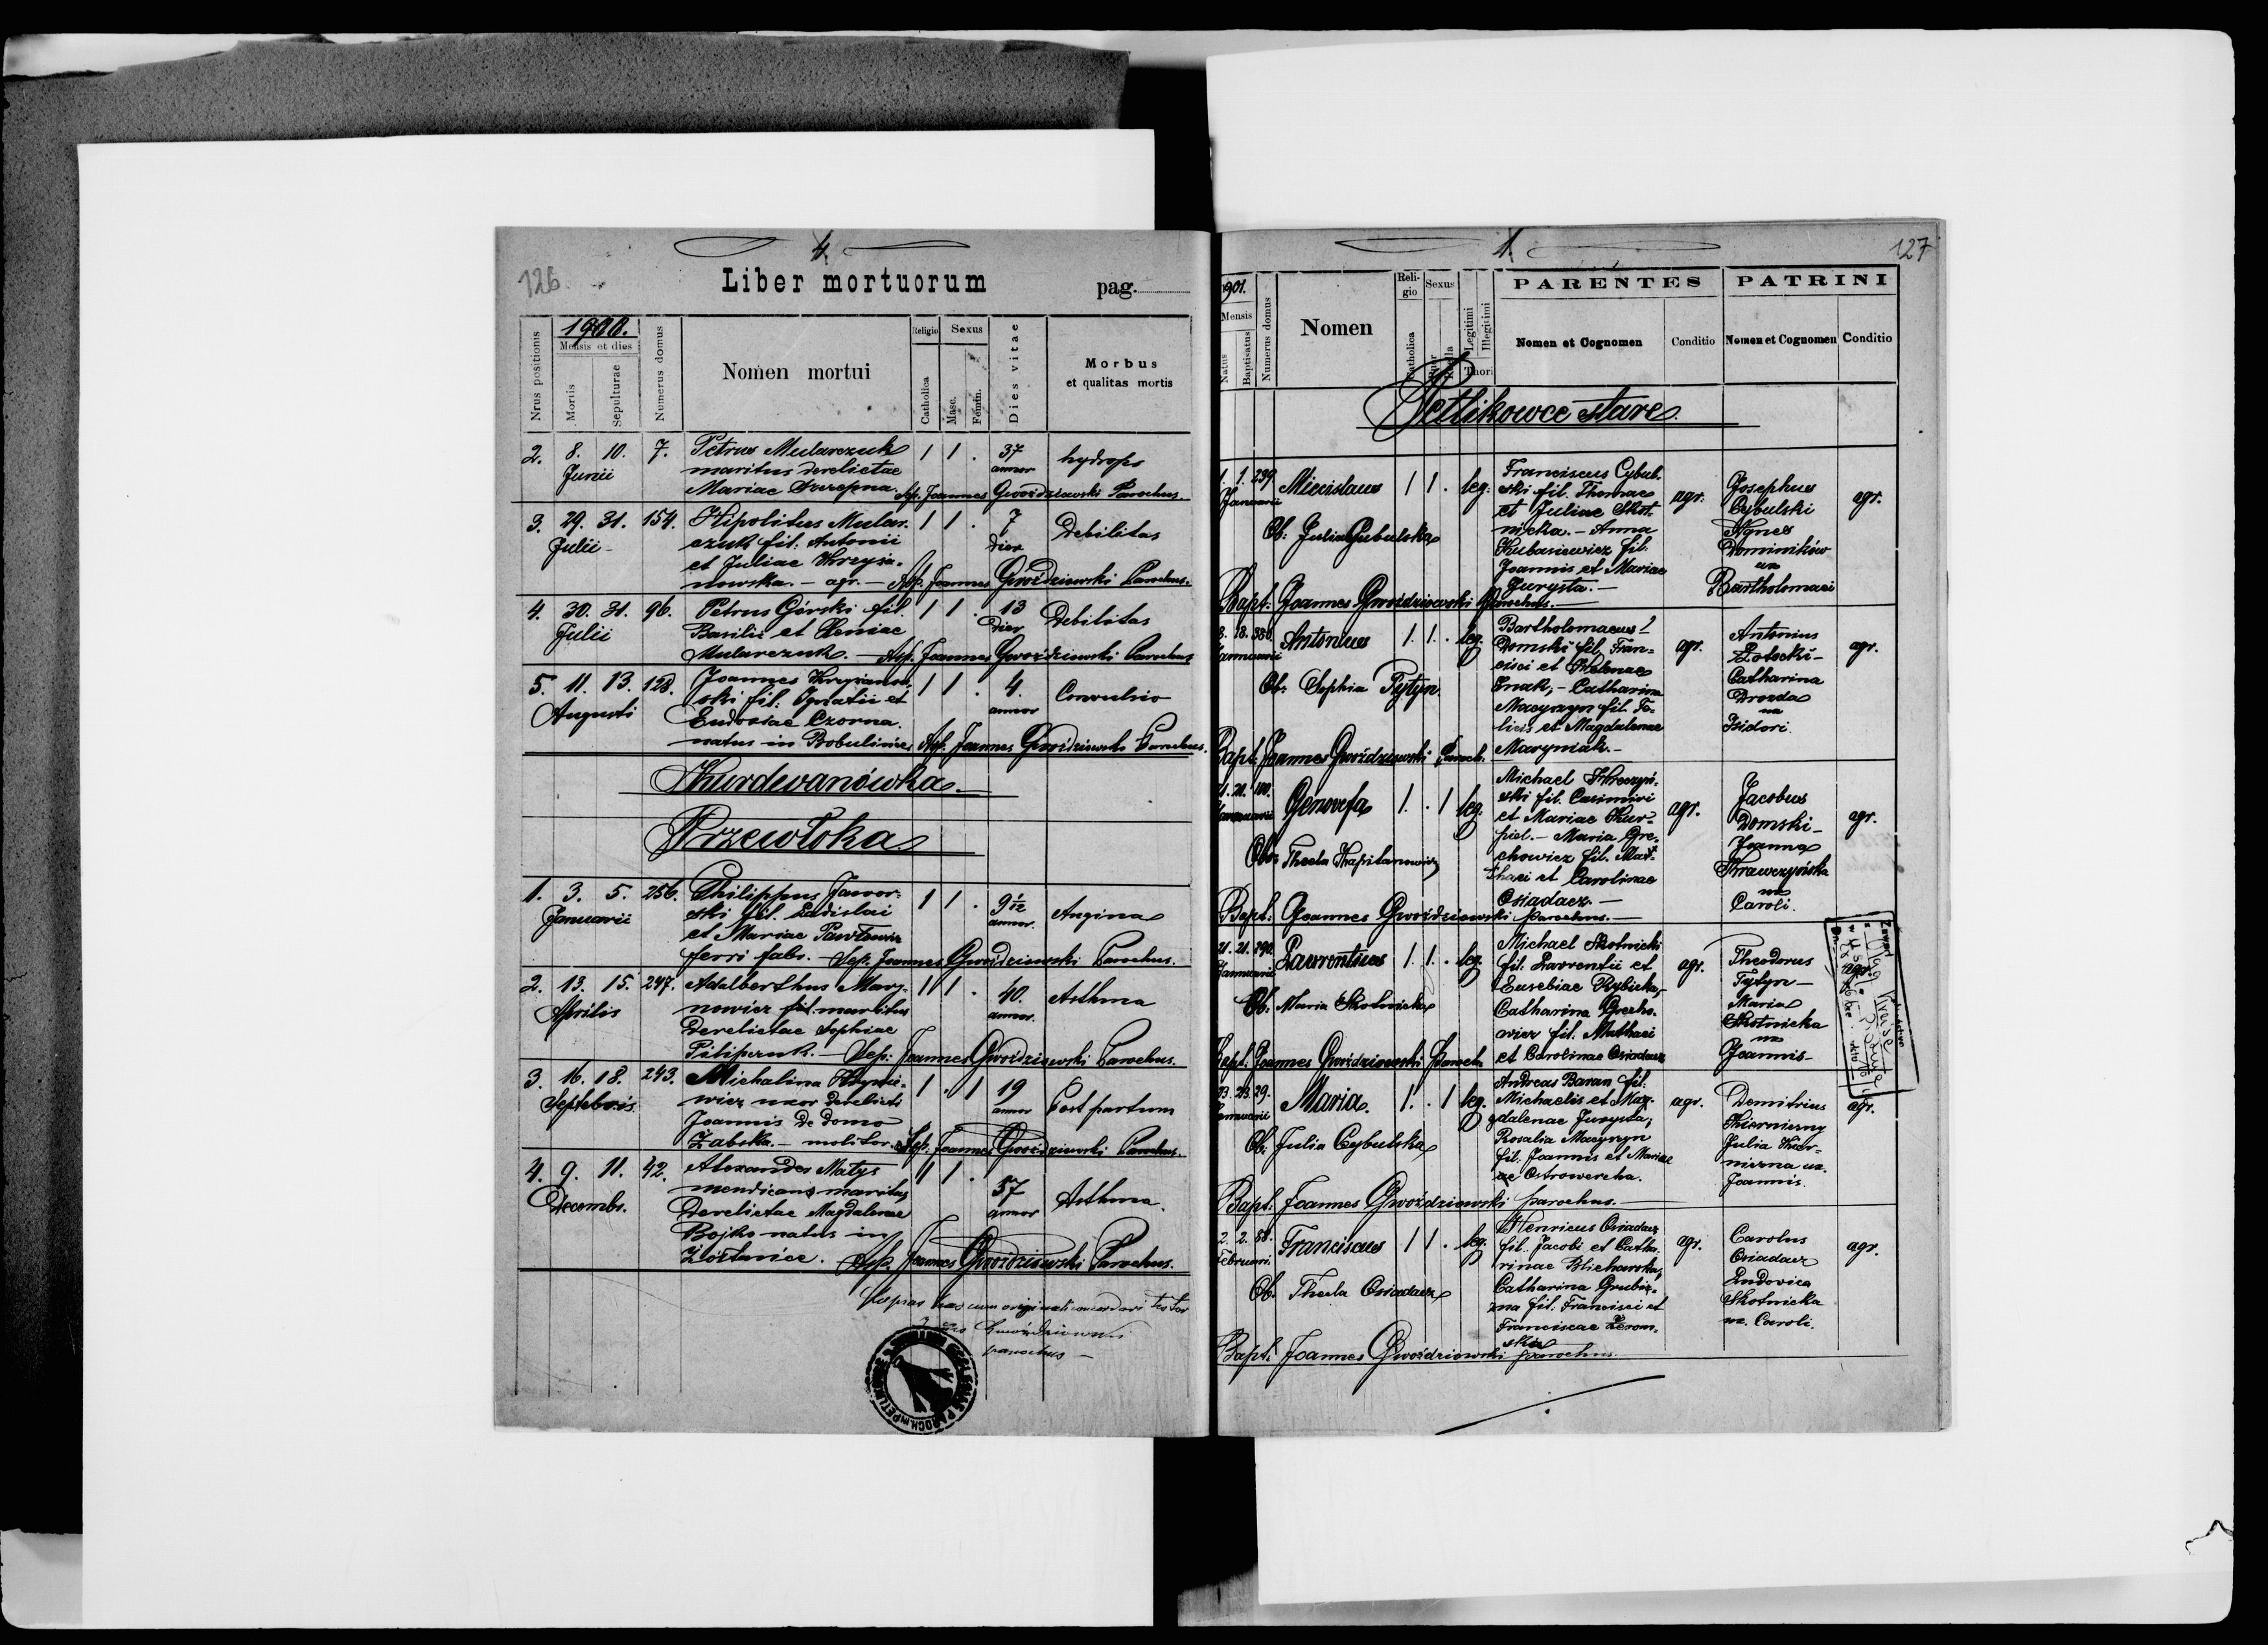 4.
126
Liber mortuorum
pag.
Nrus positionis
1900.
Mensis et dies
Mortis
Sepulturae
Numerus domus
Nomen mortui
Religio
Catholica
Sexus
Masc.
Femin.
Dies vitae
Morbus
et qualitas mortis
2. 8. 10. 7. Petrus Mularczuk 1 1 . 37 hydrops
Junii maritus derelictae annor
Mariae Szczepna. Sep. Joannes Gwoździowski Parochus.
3. 29. 31. 154. Hipolitus Mular- 1 1 . 7 Debilitas
Julii czuk fil: Antonii dier
et Juliae Krzyża-
nowska. - agr. - Sep. Joannes Gwoździowski Parochus.
4. 30. 31. 96. Petrus Górski fil. 1 1 . 13 Debilitas
Julii Basilii et Xeniae dier
Mularczuk. - Sep. Joannes Gwoździowski Parochus
5. 11. 13. 128. Joannes Krzyżanow- 1 1 . 4. Convulsio
Augusti ski fil: Ignatii et annor
Eudoxiae Czorna.
natus in Bobulińce Sep. Joannes Gwoździowski Parochus.
Kurdwanówka.
Przewłoka
1. 3. 5. 256. Philippus Jawor- 1 1 . 9 /12 Angina
Januarii ski fil. Ladislai annor.
et Mariae Pawłowicz
ferri fabr. - Sep. Joannes Gwoździowski Parochus.
2. 13. 15. 247. Adalberthus Mary- 1 1 . 40. Asthma
Aprilis nowicz maritus annor.
derelictae Sophiae
Pilipczuk. - Sep: Joannes Gwoździowski Parochus.
3. 16. 18. 243. Michalina 1 . 1 19 Post partum
Septebris wicz uxor derelicti annor
Joannis de domo
Żabska. - molitor. Sep: Joannes Gwoździowski Parochus.
4. 9. 11. 42. Alexander Matys 1 1 . 57 Asthma.
Decembr. mendicans maritus annor
derelictae Magdalenae
Bojko natus in
Sep. Joannes Gwoździowski Parochus.
cum originali concordari testor
Gwoździowski
parochus -
1.
127
1901.
Mensis
Natus
Baptisatus
Numerus domus
Nomen
Religio
Catholica
Sexus
Puer
Puella
Legitimi
Illegitimi
Thori
PARENTES
Nomen et Cognomen
Conditio
PATRINI
Nomen et Cognomen
Conditio
Petlikowce stare.
1. 1. 239 Miecislaus 1 1 . leg. Franciscus Cybul- agr. Josephus agr.
Januarii ski fil. Thomae Cybulski
et Juliae Skot- Agnes
Ob: Julia Cybulska nicka. - Anna Dominików
Kubasiewicz fil. ux
Joannis et Mariae Bartholomaei
Jurysta. -
Bapt: Joannes Gwoździowski parochus. -
8. 18. 386. Antonius 1. 1. . leg. Bartholomaeus agr. Antonius agr.
Januarii Domski fil. Fran- Potocki -
cisci et Helenae Catharina
Ob: Sophia Tytyn. Catharina Drozda
Maczyzyn fil. Fe- ux
licis et Magdalenae Isidori.
Bapt: Joannes Gwoździowski Paroch. Maryniak. -
21. 21. 100. Genovefa 1. . 1 leg. Michael agr. Jacobus agr.
Januarii ski fil. Casimiri Domski -
et Mariae Kur- Joanna
piel. - Maria Gre- Krawczyńska
Obs: Thecla Kapitanowicz chowicz fil. Mat- ux
thaei et Carolinae Caroli.
Osiadacz. -
Bapt: Joannes Gwoździowski parochus. -
21. 21. 290. Laurentius 1. 1. . leg. Michael Skotnicki agr. Theodorus agr.
Januarii fil. Laurentii et Tytyn -
Eusebiae Rybicka, Maria
Ob: Maria Skotnicka Catharina Grecho- Skotnicka
wicz fil. Mathaei ux
Bapt: Joannes Gwoździowski Paroch et Carolinae Osiadacz Joannis -
23. 23. 29. Maria. 1. . 1 leg. Andreas Baran fil: agr. Demitrius agr.
Januarii Michaelis et Mag- Kiernieżny
dalenae Jurysta, Julia Kier-
Ob: Julia Cybulska Rosalia Maczyzyn nieżna ux.
fil: Joannis et Mariae Joannis.
Ostrowercha.
Bapt: Joannes Gwoździowski parochus. -
2. 2. 58. Franciscus 1 1 . leg. Henricus Osiadacz agr. Carolus agr.
Februari. fil. Jacobi et Catha- Osiadacz
rinae Blicharska, Ludovica
Ob. Thecla Osiadacz Catharina Grubiz- Skotnicka
na fil. Francisci et ux. Caroli.
Franciscae Żerom-
ska
Bapt: Joannes Gwoździowski parochus.